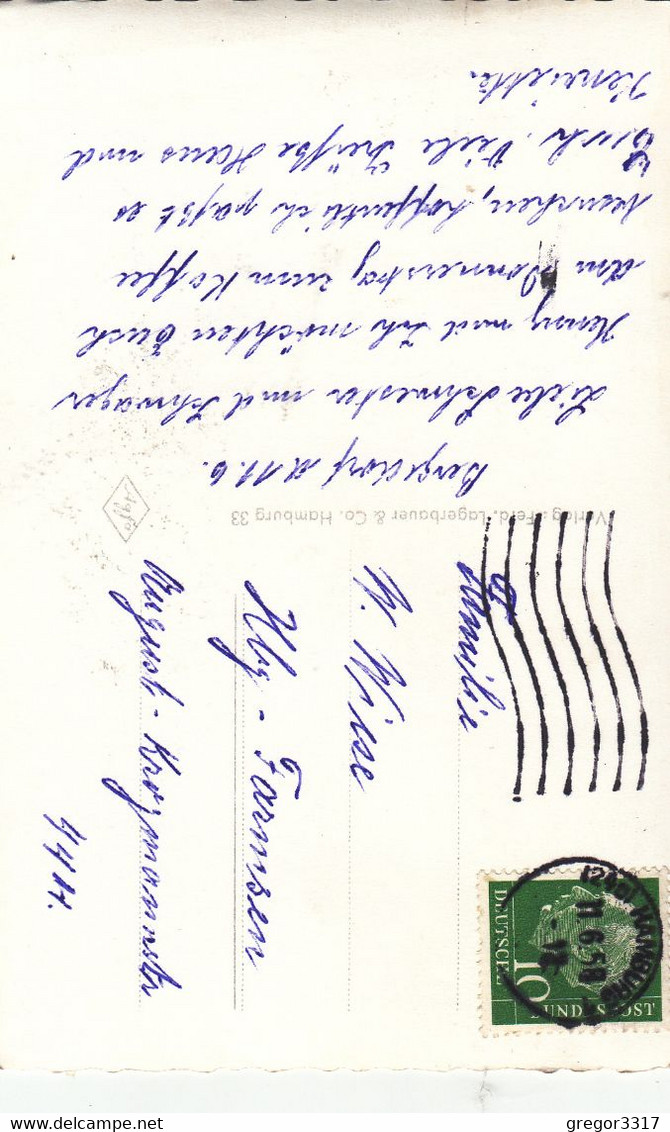 Bergedorf d 11.6.
Liebe Schwester und Schwager
Henny und Ich möchten Euch
am Donnerstag zum Koffee
besuchen, hoffentlich paßt es
Euch. Viele Grüße Haus und
Verlag: Ferd. Lagerbauer & Co. Hamburg 33
Agfa
Familie
W. Wiese
Hbg - Farmsen
August - Krogmannstr
(24a) HAMBURG
11.6.59
10
DEUTSCHE
BUNDESPOST
gregor3317